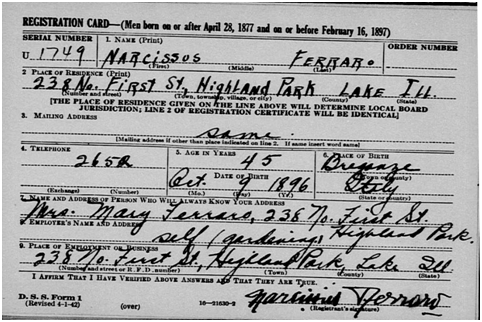 REGISTRATION CARD—(Men born on or after April 28, 1877 and on or before February 16, 1897)
SERIAL NUMBER 1. NAME (Print) ORDER NUMBER
U 1749 NARCISSOS FERRARO
(First) (Middle) (Last)
2. PLACE OF RESIDENCE (Print)
238 No. FIRST ST, HIGHLAND PARK LAKE ILL.
(Number and street) (Town, township, village, or city) (County) (State)
[THE PLACE OF RESIDENCE GIVEN ON THE LINE ABOVE WILL DETERMINE LOCAL BOARD
JURISDICTION; LINE 2 OF REGISTRATION CERTIFICATE WILL BE IDENTICAL]
3. MAILING ADDRESS
same
[Mailing address if other than place indicated on line 2. If same insert word same]
4. TELEPHONE 5. AGE IN YEARS 6. PLACE OF BIRTH
2652 45 Breganze
DATE OF BIRTH (Town or county)
Oct. 9 1896 Italy
(Exchange) (Number) (Mo.) (Day) (Yr.) (State or country)
7. NAME AND ADDRESS OF PERSON WHO WILL ALWAYS KNOW YOUR ADDRESS
Mrs. Mary Ferraro, 238 No. First St.
8. EMPLOYER'S NAME AND ADDRESS Highland Park.
self (gardening)
9. PLACE OF EMPLOYMENT OR BUSINESS
238 No. First St, Highland Park Lake Ill
(Number and street or R. F. D. number) (Town) (County) (State)
I AFFIRM THAT I HAVE VERIFIED ABOVE ANSWERS AND THAT THEY ARE TRUE.
D. S. S. Form 1
(Revised 4-1-42) (over) 16—21630-2 Ferraro
(Registrant's signature)